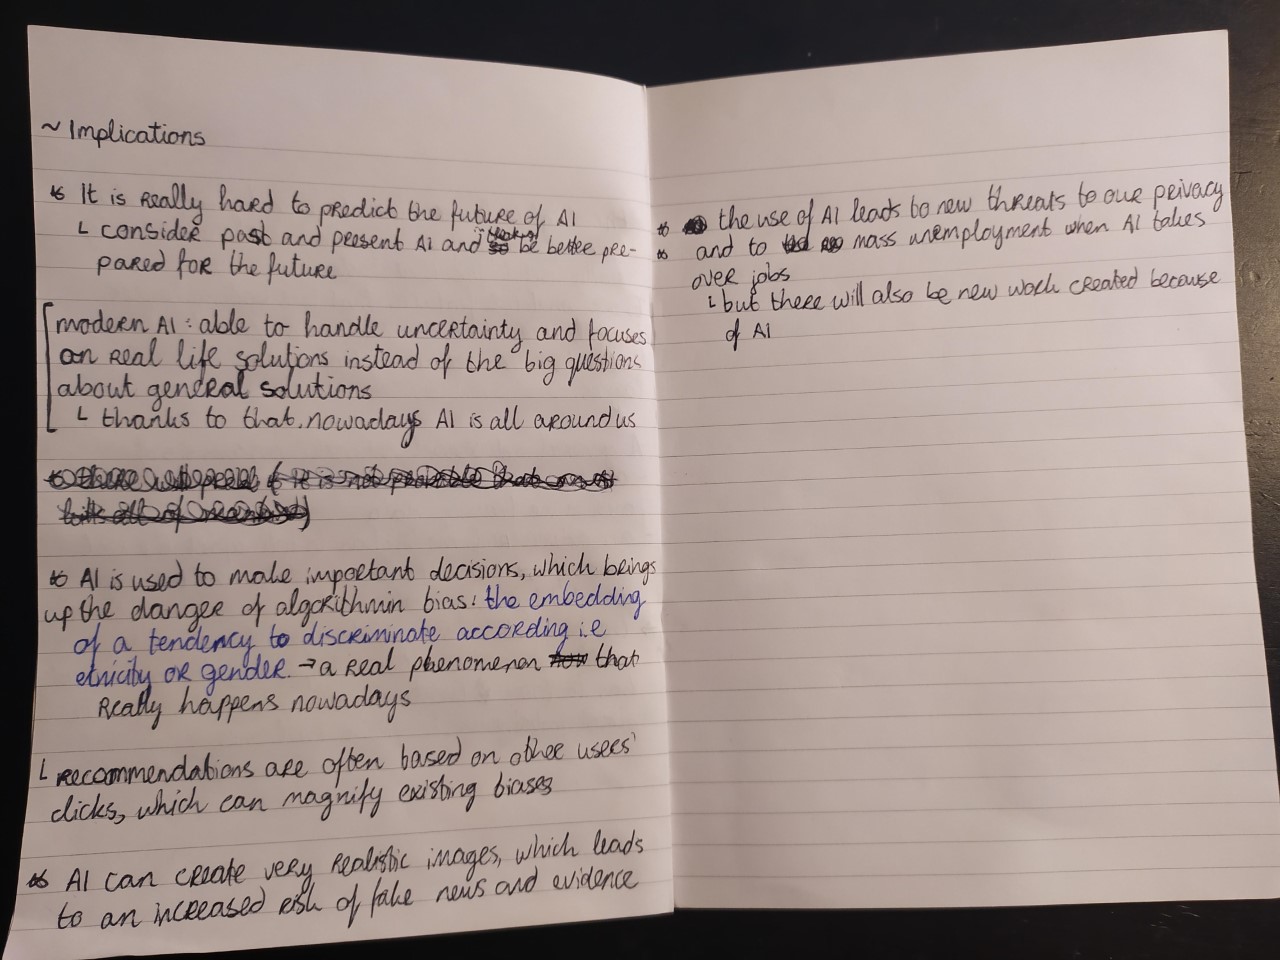 ~ Implications
It is really hard to predict the future of AI
└ consider past and present AI and be better pre-
pared for the future
modern AI: able to handle uncertainty and focuses
on real life solutions instead of the big questions
about general solutions
└ thanks to that, nowadays AI is all around us
AI is used to make important decisions, which brings
up the danger of algorithmin bias: the embedding
of a tendency to discriminate according i.e
etnicity or gender. → a real phenomenon that
really happens nowadays
└ recommendations are often based on other users'
clicks, which can magnify existing biases
AI can create very realistic images, which leads
to an increased risk of fake news and evidence
the use of AI leads to new threats to our privacy
and to mass unemployment when AI takes
over jobs
└ but there will also be new work created because
of AI